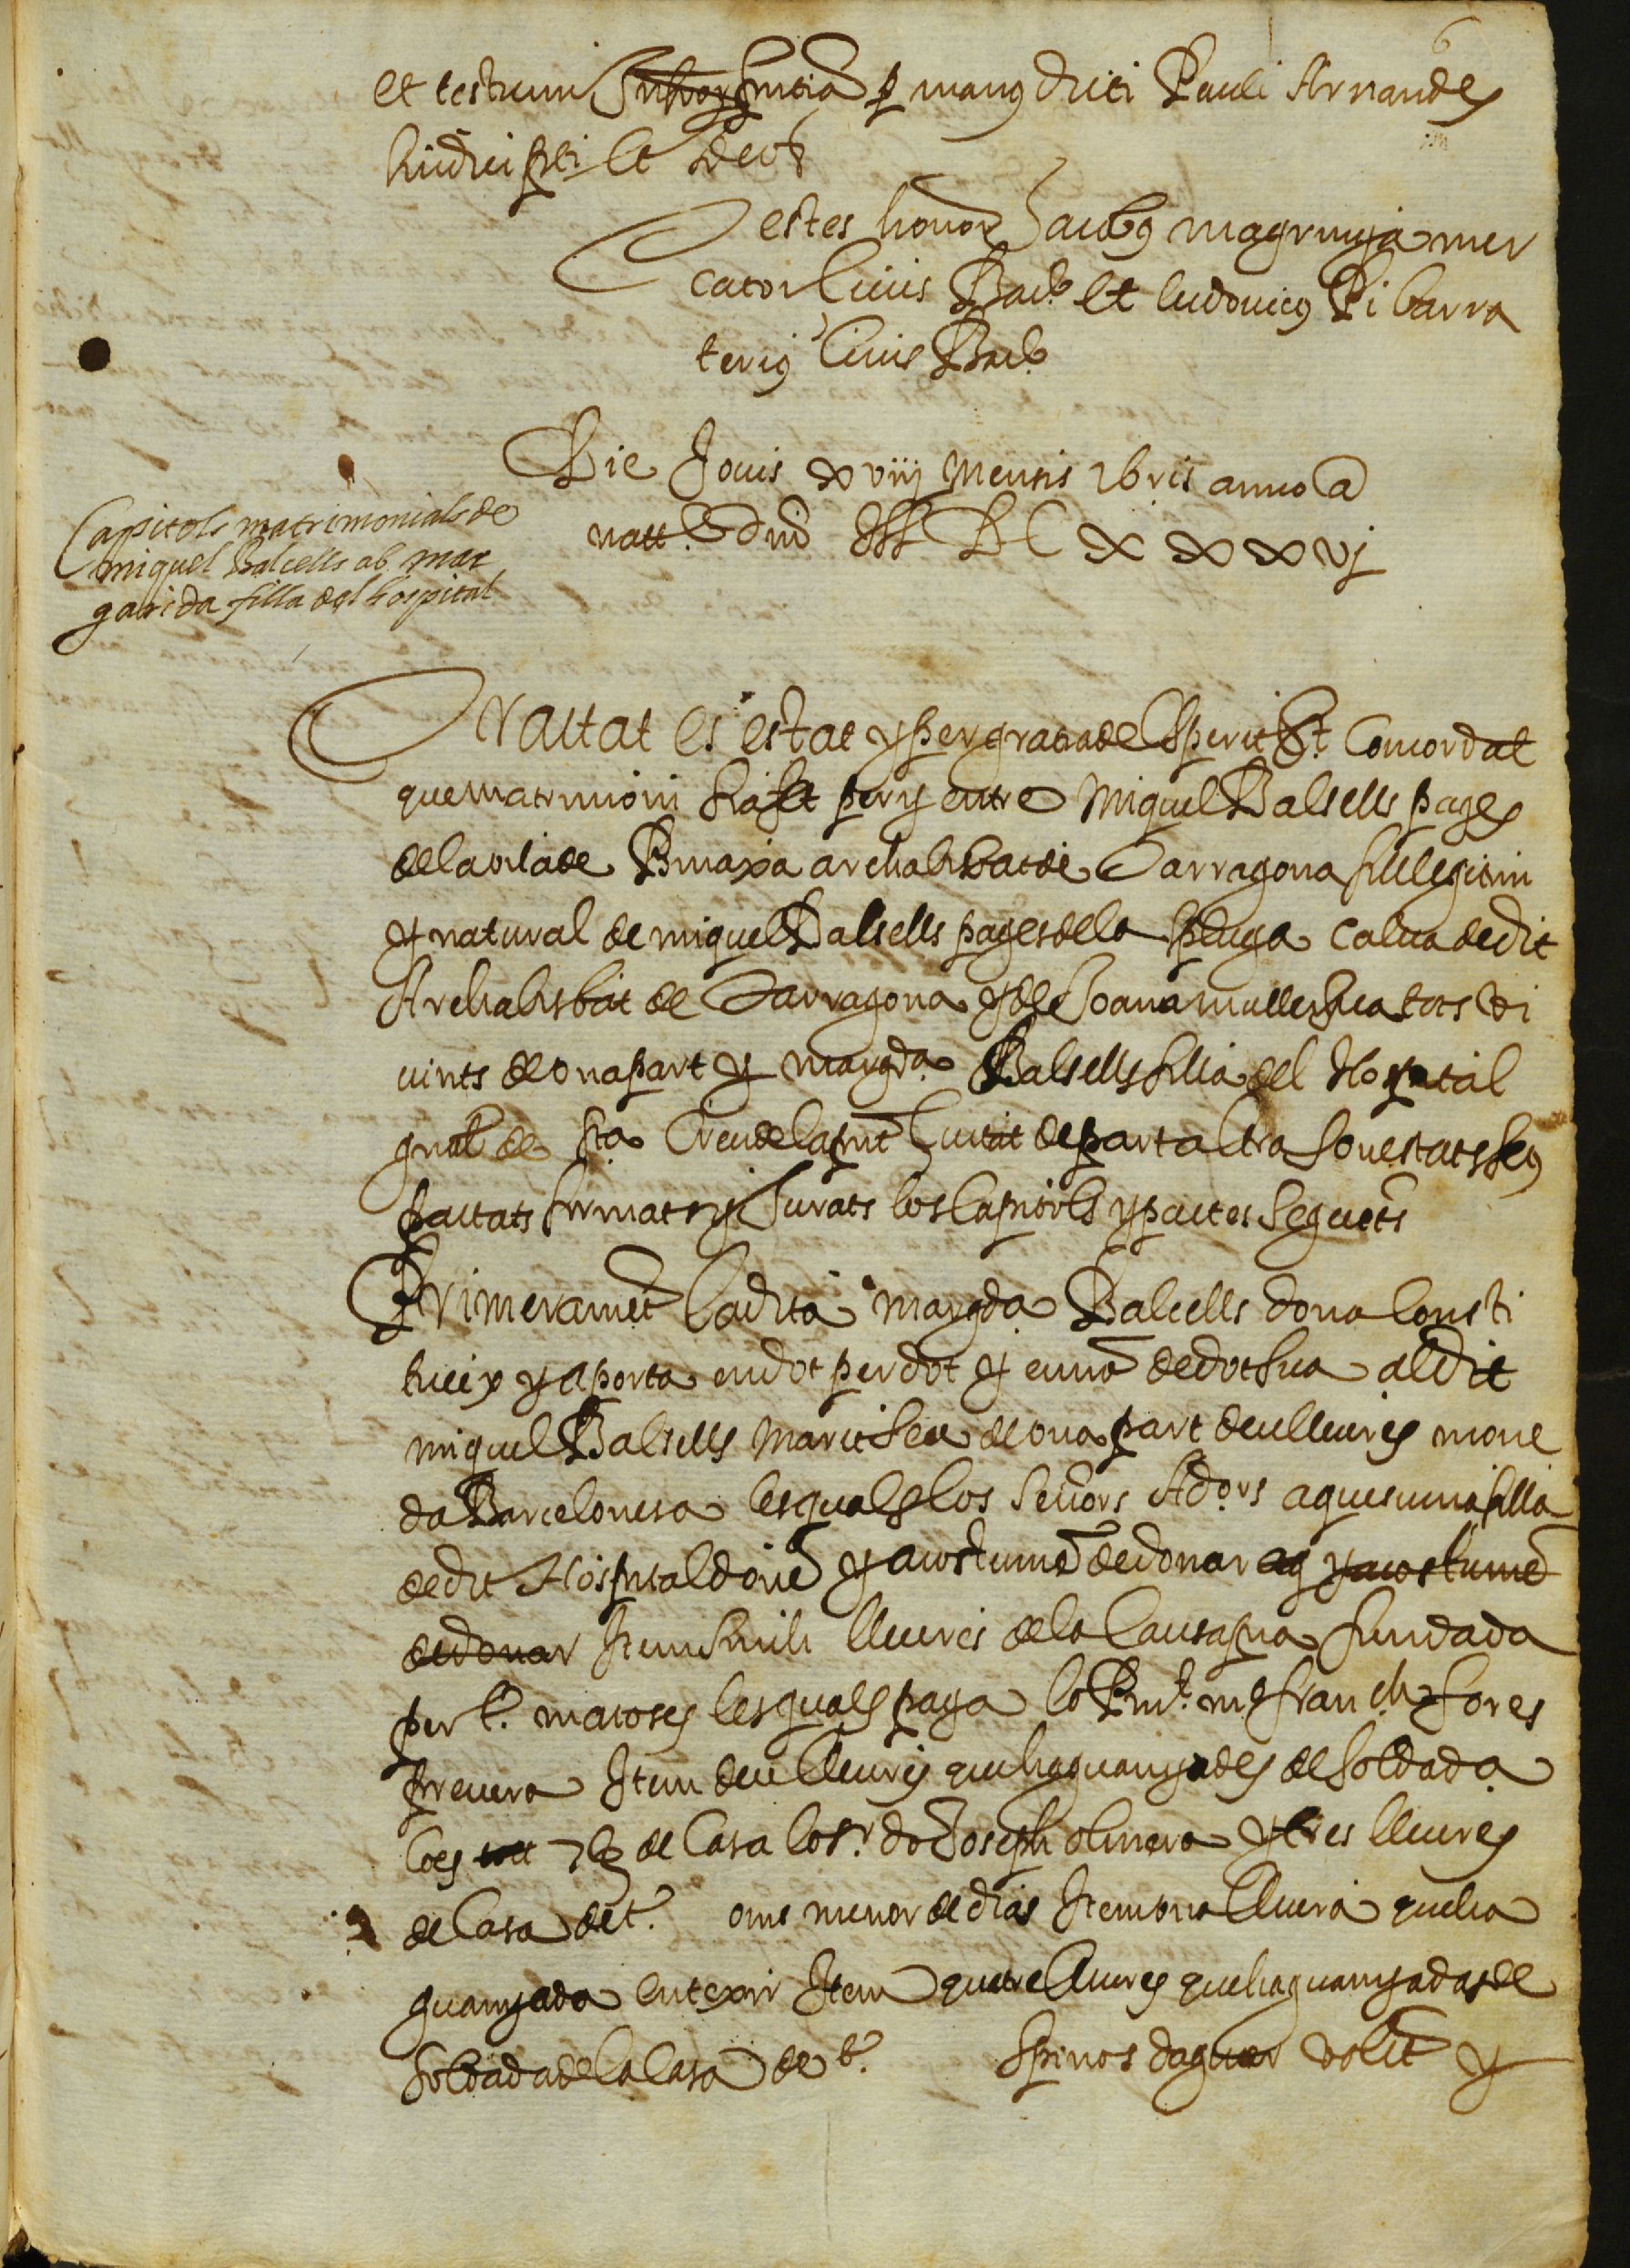 6
et testium infrascriptia p manus dicti Pauli Arnandes
hui9 dicti et Decr
Testes honor Jacobus magrinya mer
cator Civis Barc. et ludovicus Pi barra
terius Civis Barc.
Die Jovis xviij Mensis xbris anno a
natt.e Dni MDCxxxvj
Capitols matrimonials de
miquel Balcells ab mar
garida filla del hospital
Tractat es estat y per gratia del Sperit St. Concordat
que matrimoni sia fet per y entre Miquel Balsells pages
de la vila de Bruaxa archabisbat de Tarragona fill legitim
y natural de miquel Balsells pages dela spluga calva de dit
Archabisbat de Tarragona y de Joana muller sua tots vi
vints de una part y margda. Balsells filla del Hospital
gnal de sta Creu de la pnt Ciutat de part altra son estats fets
pactats firmats y Jurats los Capitols y pactes Seguets
Primeramet la dita margda Balcells dona Consti
tueix y aporta en dot per dot y en no de dot sua al dit
miquel Balsells Marit Seu de una part deu lleures mone
da Barcelonesa les quals los Senors Ador.s a quescuna filla
de dit Hospital done y acostume de donar y acostume
de donar Item sinch lleures de la Causa pia fundada
per t. macoses les quals paga lo Rnt. mo franch fores
prevera Item deu lleures que ha guanyades de soldada
ço es 7 ll de Casa lo Sr. don Joseph olmera y tres lleures
de Casa de t. oms menor de dias Item una lleura que ha
guanyada en texir Item quatre lleures que ha guanyadas de
soldada de la Casa de t. Spinos daguer volet y